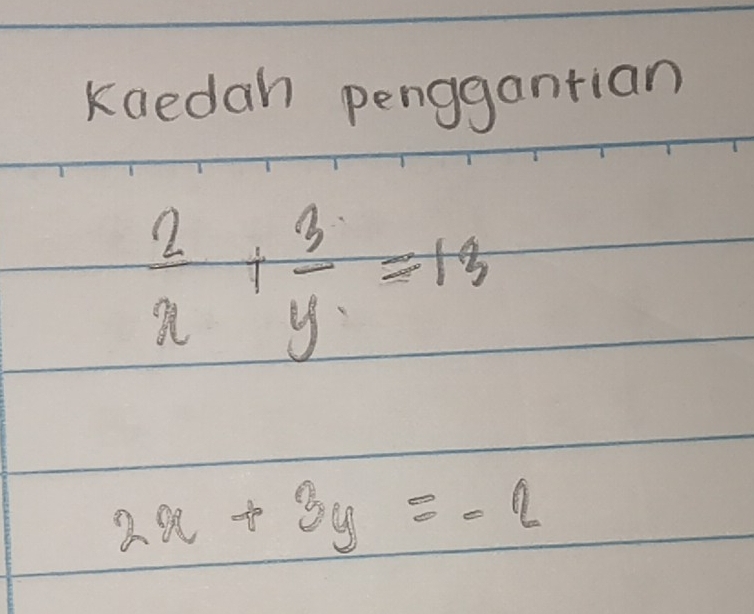 Kaedah penggantian
2/x + 3/y = 13
2x + 3y = - 2